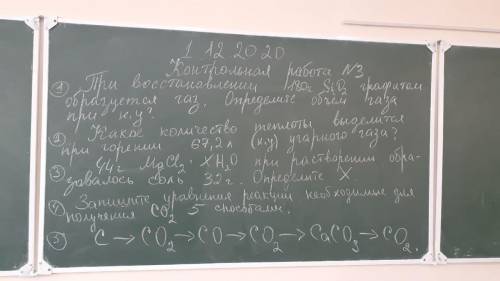 1 12 2020
Контрольная работа №3
① При восстановлении 180г SiO₂ графитом
образуется газ. Определите объём газа
при н.у?
② Какое количество теплоты выделится
при горении 67,2л (н.у) угарного газа?
③ 44г MgCl₂ · XH₂O при растворении обра-
зовалось соль 32г. Определите X
④ Запишите уравнения реакции необходимые для
получения CO₂ 5 способами.
⑤ C → CO₂ → CO → CO₂ → CaCO₃ → CO₂.